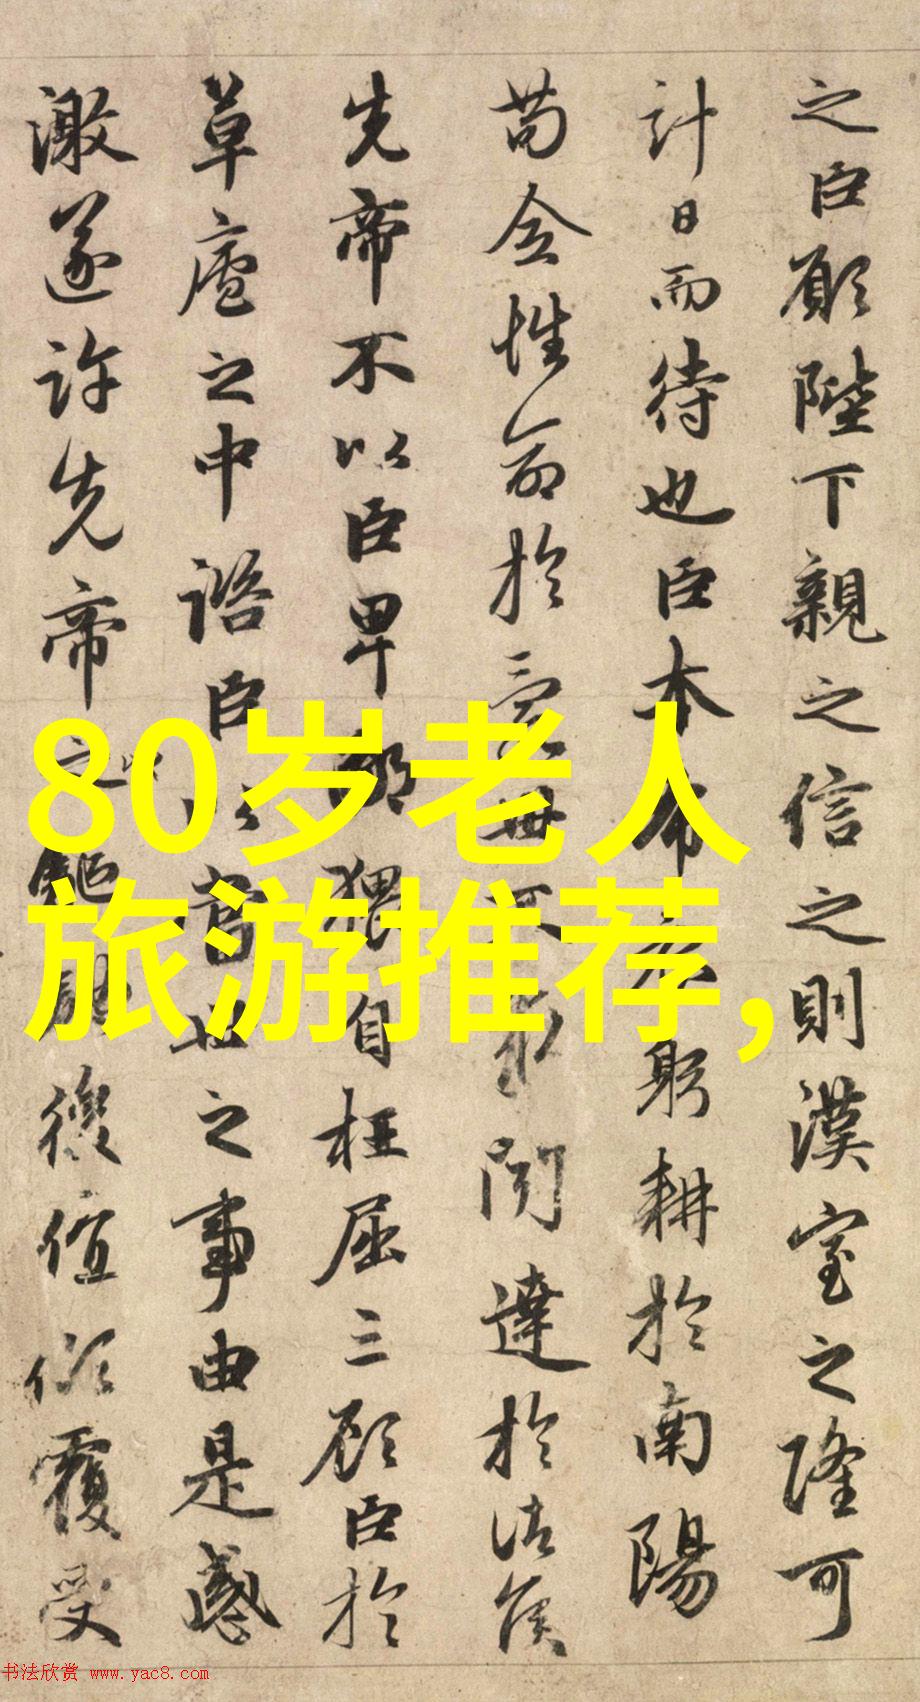 之臣願陛下親之信之則漢室之隆可
計日而待也臣本布衣躬耕於南陽
苟全性命於亂世不求聞達於諸侯
先帝不以臣卑鄙猥自枉屈三顧臣於
草廬之中諮臣以當世之事由是感
激遂許先帝以驅馳後值傾覆受
80岁老人
旅游推荐,
书法欣赏 www.yac8.com